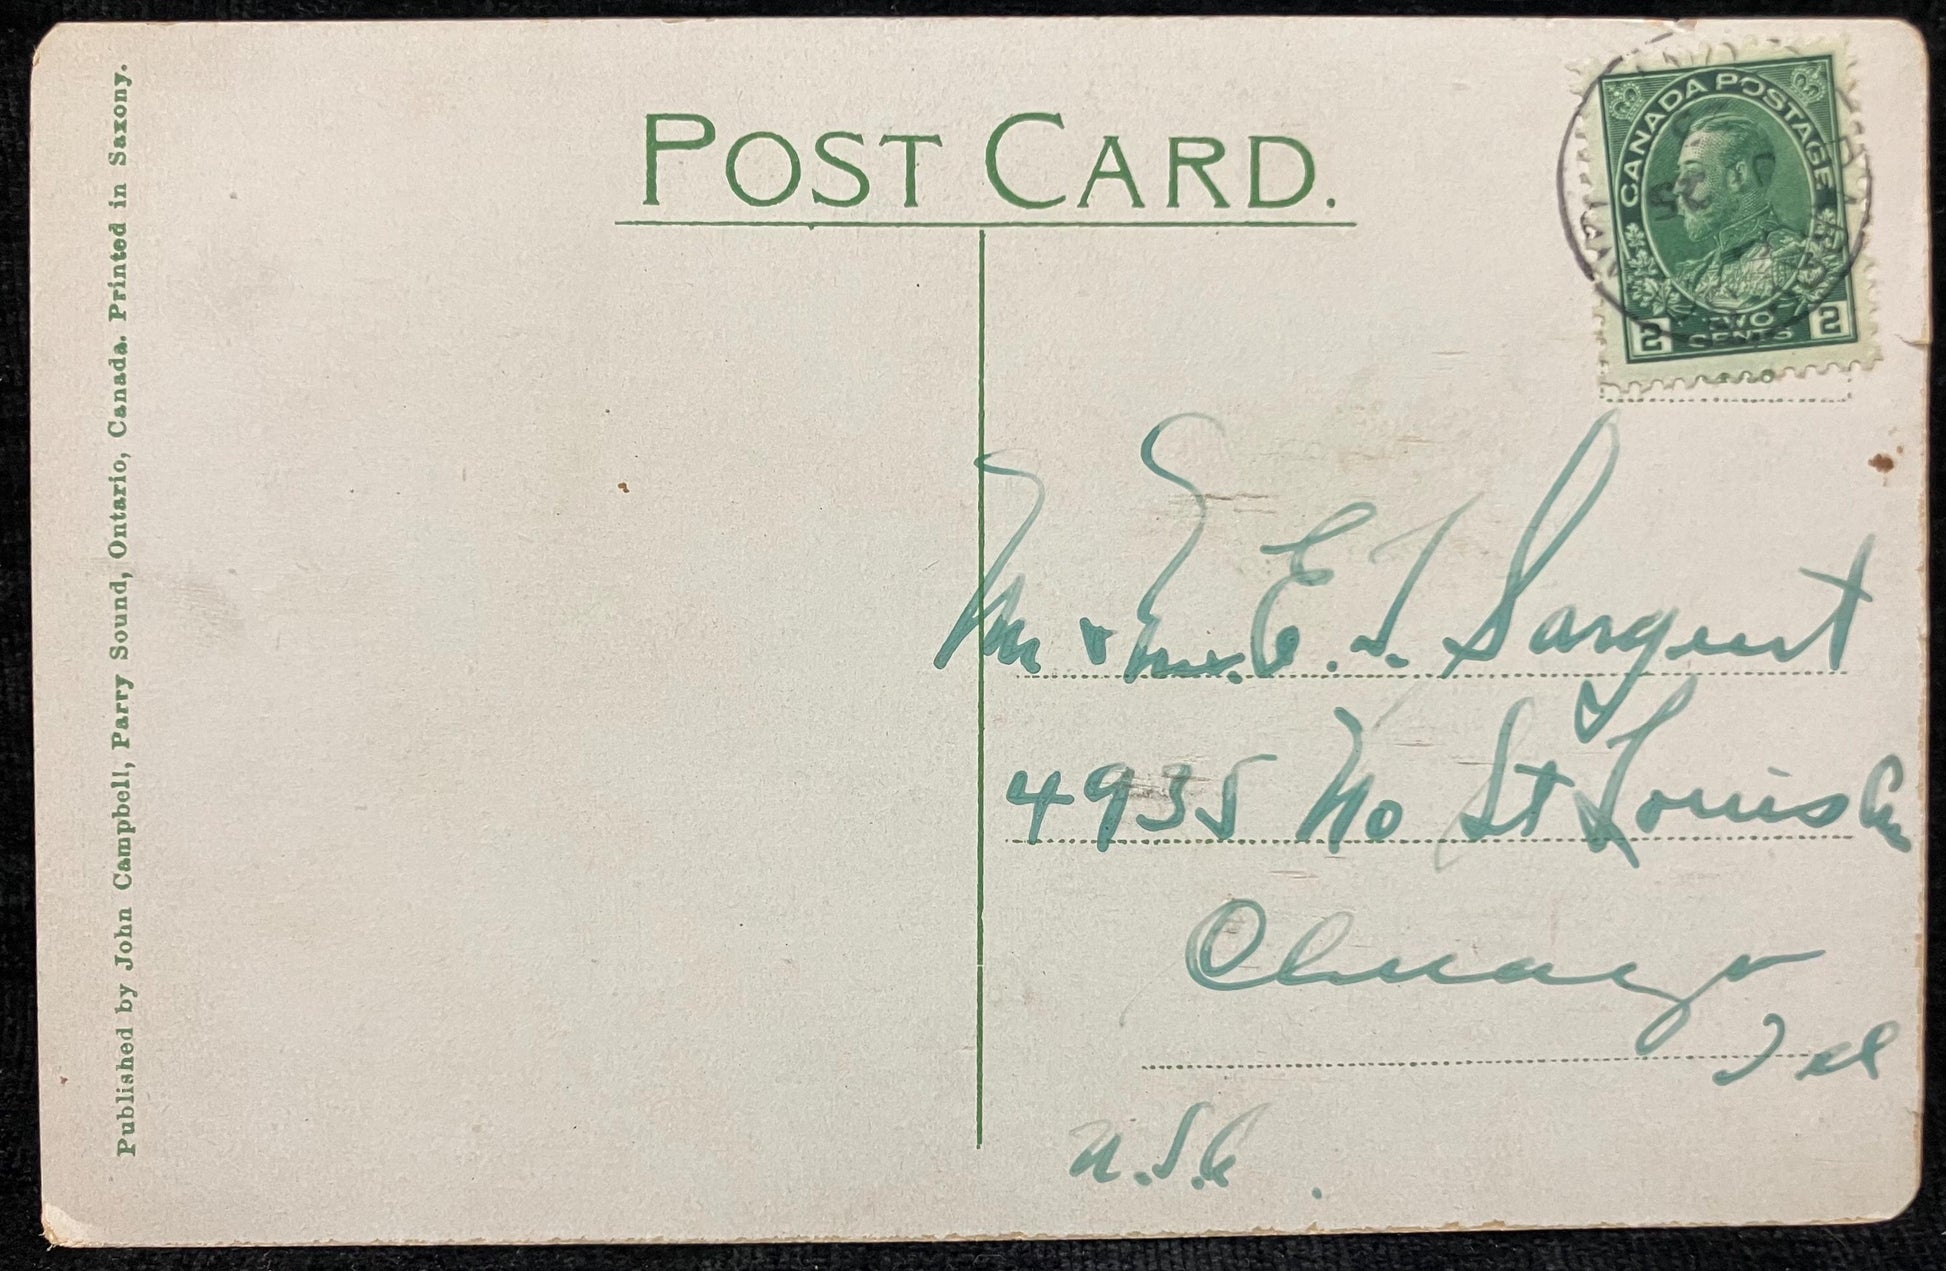 POST CARD.
CANADA POSTAGE
25
2 TWO CENTS 2
Published by John Campbell, Parry Sound, Ontario, Canada. Printed in Saxony.
Mr & Mrs. E. T. Sargent
4935 No St Louis Av
Chicago
Ill
U.S.A.